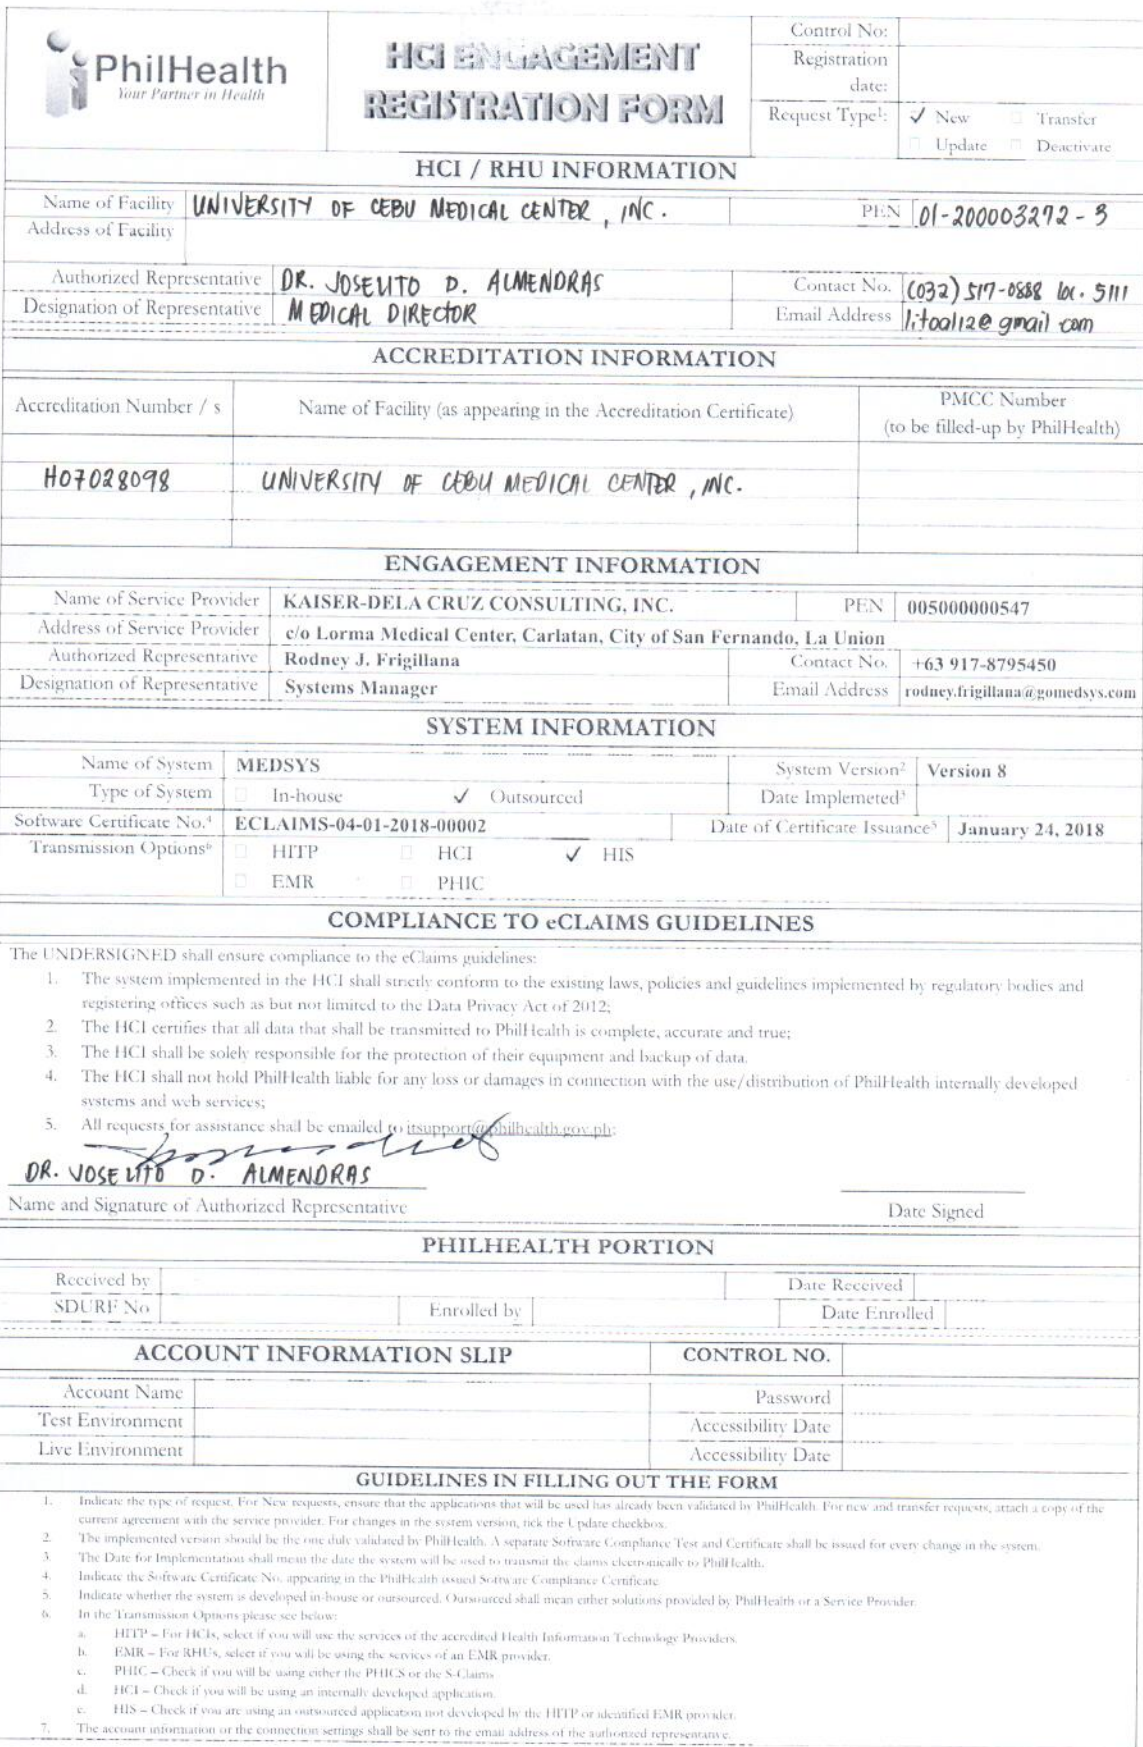 PhilHealth
Your Partner in Health
HCI ENGAGEMENT
REGISTRATION FORM
Control No:
Registration
date:
Request Type¹: ✓ New Transfer
Update Deactivate
HCI / RHU INFORMATION
Name of Facility UNIVERSITY OF CEBU MEDICAL CENTER, INC. PEN 01-200003272-3
Address of Facility
Authorized Representative DR. JOSELITO D. ALMENDRAS Contact No. (032) 517-0888 loc. 5111
Designation of Representative MEDICAL DIRECTOR Email Address litoal12@gmail com
ACCREDITATION INFORMATION
Accreditation Number / s Name of Facility (as appearing in the Accreditation Certificate) PMCC Number
(to be filled-up by PhilHealth)
H07028098 UNIVERSITY OF CEBU MEDICAL CENTER, INC.
ENGAGEMENT INFORMATION
Name of Service Provider KAISER-DELA CRUZ CONSULTING, INC. PEN 005000000547
Address of Service Provider c/o Lorma Medical Center, Carlatan, City of San Fernando, La Union
Authorized Representative Rodney J. Frigillana Contact No. +63 917-8795450
Designation of Representative Systems Manager Email Address rodney.frigillana@gomedsys.com
SYSTEM INFORMATION
Name of System MEDSYS System Version² Version 8
Type of System In-house ✓ Outsourced Date Implemeted³
Software Certificate No.⁴ ECLAIMS-04-01-2018-00002 Date of Certificate Issuance⁵ January 24, 2018
Transmission Options⁶ HITP HCI ✓ HIS
EMR PHIC
COMPLIANCE TO eCLAIMS GUIDELINES
The UNDERSIGNED shall ensure compliance to the eClaims guidelines:
1. The system implemented in the HCI shall strictly conform to the existing laws, policies and guidelines implemented by regulatory bodies and
registering offices such as but not limited to the Data Privacy Act of 2012;
2. The HCI certifies that all data that shall be transmitted to PhilHealth is complete, accurate and true;
3. The HCI shall be solely responsible for the protection of their equipment and backup of data.
4. The HCI shall not hold PhilHealth liable for any loss or damages in connection with the use/distribution of PhilHealth internally developed
systems and web services;
5. All requests for assistance shall be emailed to itsupport@philhealth.gov.ph;
DR. JOSELITO D. ALMENDRAS
Name and Signature of Authorized Representative Date Signed
PHILHEALTH PORTION
Received by Date Received
SDURF No Enrolled by Date Enrolled
ACCOUNT INFORMATION SLIP CONTROL NO.
Account Name Password
Test Environment Accessibility Date
Live Environment Accessibility Date
GUIDELINES IN FILLING OUT THE FORM
1. Indicate the type of request. For New requests, ensure that the applications that will be used has already been validated by PhilHealth. For new and transfer requests, attach a copy of the
current agreement with the service provider. For changes in the system version, tick the Update checkbox.
2. The implemented version should be the one duly validated by PhilHealth. A separate Software Compliance Test and Certificate shall be issued for every change in the system.
3. The Date for Implementation shall mean the date the system will be used to transmit the claims electronically to PhilHealth.
4. Indicate the Software Certificate No. appearing in the PhilHealth issued Software Compliance Certificate
5. Indicate whether the system is developed in-house or oursourced. Outsourced shall mean either solutions provided by PhilHealth or a Service Provider.
6. In the Transmission Options please see below:
a. HITP – For HCIs, select if you will use the services of the accredited Health Information Technology Providers.
b. EMR – For RHUs, select if you will be using the services of an EMR provider.
c. PHIC – Check if you will be using either the PHICS or the S-Claims
d. HCI – Check if you will be using an internally developed application.
e. HIS – Check if you are using an outsourced application not developed by the HITP or identified EMR provider.
7. The account information or the connection settings shall be sent to the email address of the authorized representative.